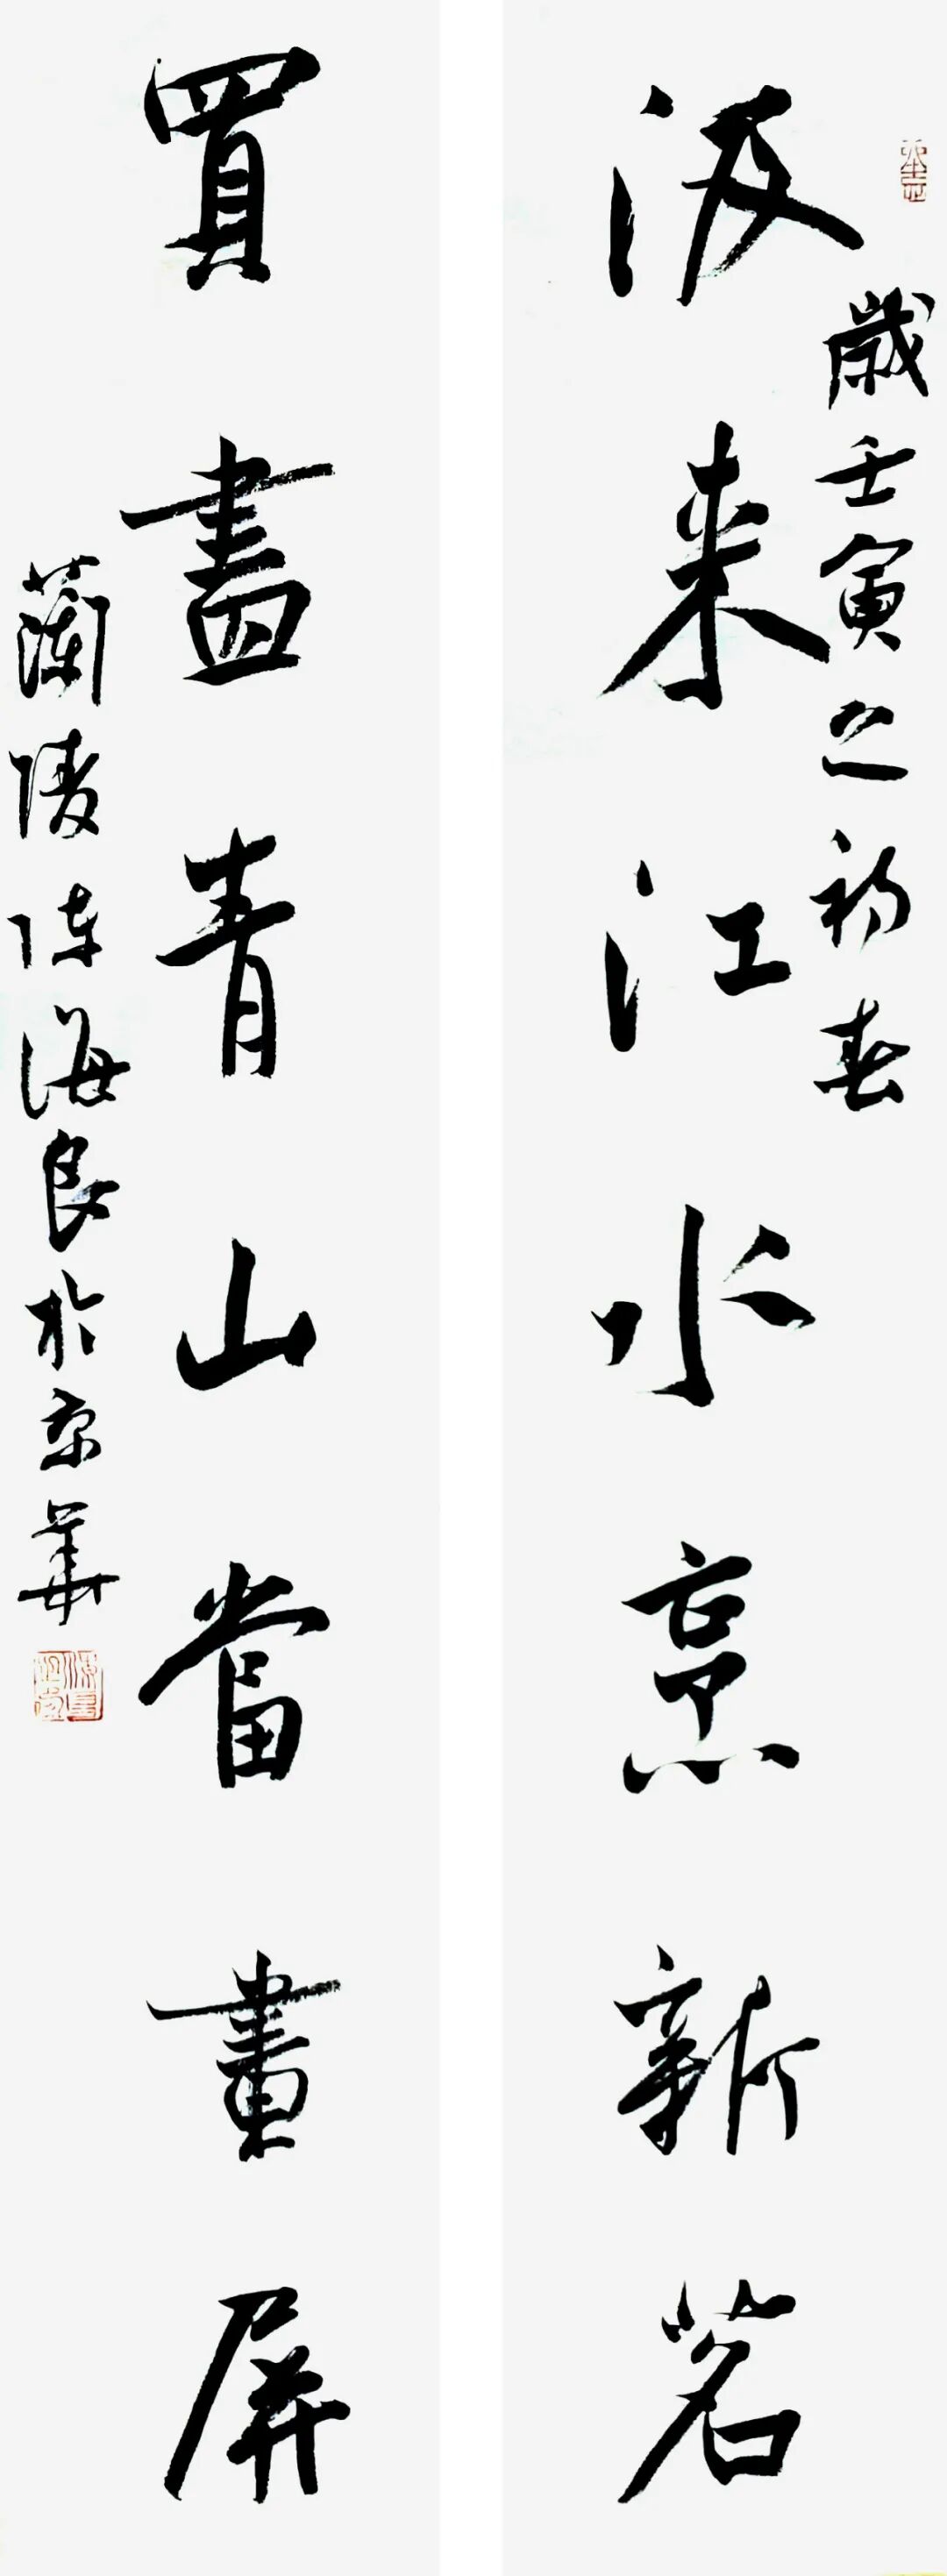 歲壬寅之初春
汲來江水烹新茗
買盡青山當畫屏
蘭陵陳海良於京華